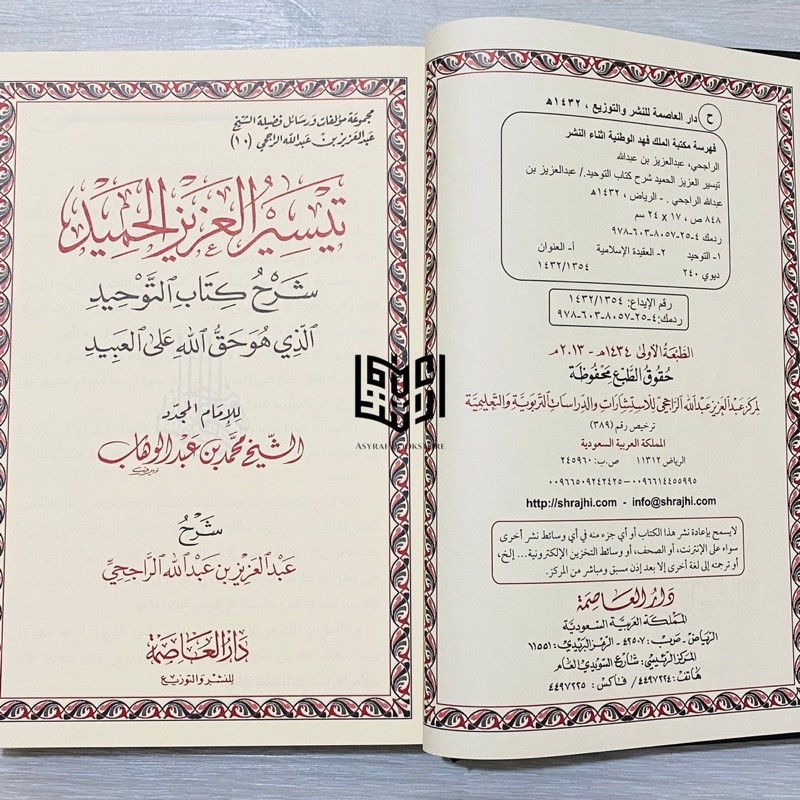 مجموعة مؤلفات ورسائل فضيلة الشيخ
عبد العزيز بن عبد الله الراجحي (١٠)
تيسير العزيز الحميد
شرح كتاب التوحيد
الذي هو حق الله على العبيد
للإمام المجدد
الشيخ محمد بن عبد الوهاب
شرح
عبد العزيز بن عبد الله الراجحي
دار العاصمة
للنشر والتوزيع
ح دار العاصمة للنشر والتوزيع ، ١٤٣٢هـ
فهرسة مكتبة الملك فهد الوطنية اثناء النشر
الراجحي، عبدالعزيز بن عبدالله
تيسير العزيز الحميد شرح كتاب التوحيد./ عبدالعزيز بن
عبدالله الراجحي . - الرياض ، ١٤٣٢هـ
٨٤٨ ص ، ١٧ × ٢٤ سم
ردمك ٤-٢٥-٨٠٥٧-٦٠٣-٩٧٨
١- التوحيد ٢- العقيدة الإسلامية أ- العنوان
ديوي ٢٤٠ ١٤٣٢/١٣٥٤
رقم الإيداع: ١٤٣٢/١٣٥٤
ردمك: ٤-٢٥-٨٠٥٧-٦٠٣-٩٧٨
الطبعة الأولى ١٤٣٤هـ - ٢٠١٣م
حقوق الطبع محفوظة
لمركز عبد العزيز عبد الله الراجحي للاستشارات والدراسات التربوية والتعليمية
ترخيص رقم (٣٨٩)
المملكة العربية السعودية
الرياض ١١٣١٢ ص.ب: ٢٤٥٩٦٠
٠٠٩٦٦١٤٤٥٥٩٩٥ - ٠٠٩٦٦٥٠٩٢٤٢٤٢٥
http://shrajhi.com - info@shrajhi.com
لا يسمح بإعادة نشر هذا الكتاب أو أي جزء منه في أي وسائط نشر أخرى
سواء على الإنترنت، أو الصحف، أو وسائط التخزين الإلكترونية... إلخ،
أو ترجمته إلى لغة أخرى إلا بعد إذن مسبق ومباشر من المركز.
دار العاصمة
المملكة العربية السعودية
الرياض - ص.ب: ٤٢٥٠٧ - الرمز البريدي: ١١٥٥١
المركز الرئيسي: شارع السويدي العام
هاتف: ٤٤٩٧٢٢٤ / فاكس: ٤٤٩٧٢٢٥
ASYRAF BOOKSTORE